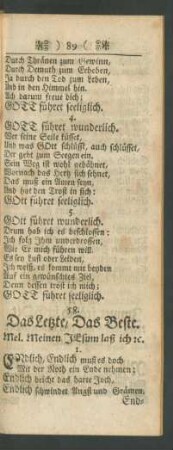 ) 89 (
Durch Thränen zum Gewinn,
Durch Demuth zum Erheben,
Ja durch den Tod zum Leben,
Und in den Himmel hin.
Ach darum freue dich;
GOTT führet seeliglich.
4.
GOTT führet wunderlich.
Wer seine Seile küsset,
Und was GOtt schlüßt, auch schlüsset,
Der geht zum Seegen ein.
Sein Weg ist wohl gebähnet,
Wornach das Hertz sich sehnet,
Das muß ein Amen seyn,
Und hat den Trost in sich:
GOtt führet seeliglich.
5.
GOtt führet wunderlich.
Drum hab ich es beschlossen:
Ich folg Ihm unverdrossen,
Wie Er mich führen will.
Es sey Lust oder Leiden,
Ich weiß, es kommt mit beyden
Auf ein gewünschtes Ziel,
Denn dessen tröst ich mich;
GOTT führet seeliglich.
58.
Das Letzte, Das Beste.
Mel. Meinen JEsum laß ich ꝛc.
1.
ENdlich, Endlich muß es doch
Mit der Noth ein Ende nehmen;
Endlich bricht das harte Joch,
Endlich schwindet Angst und Grämen,
End-